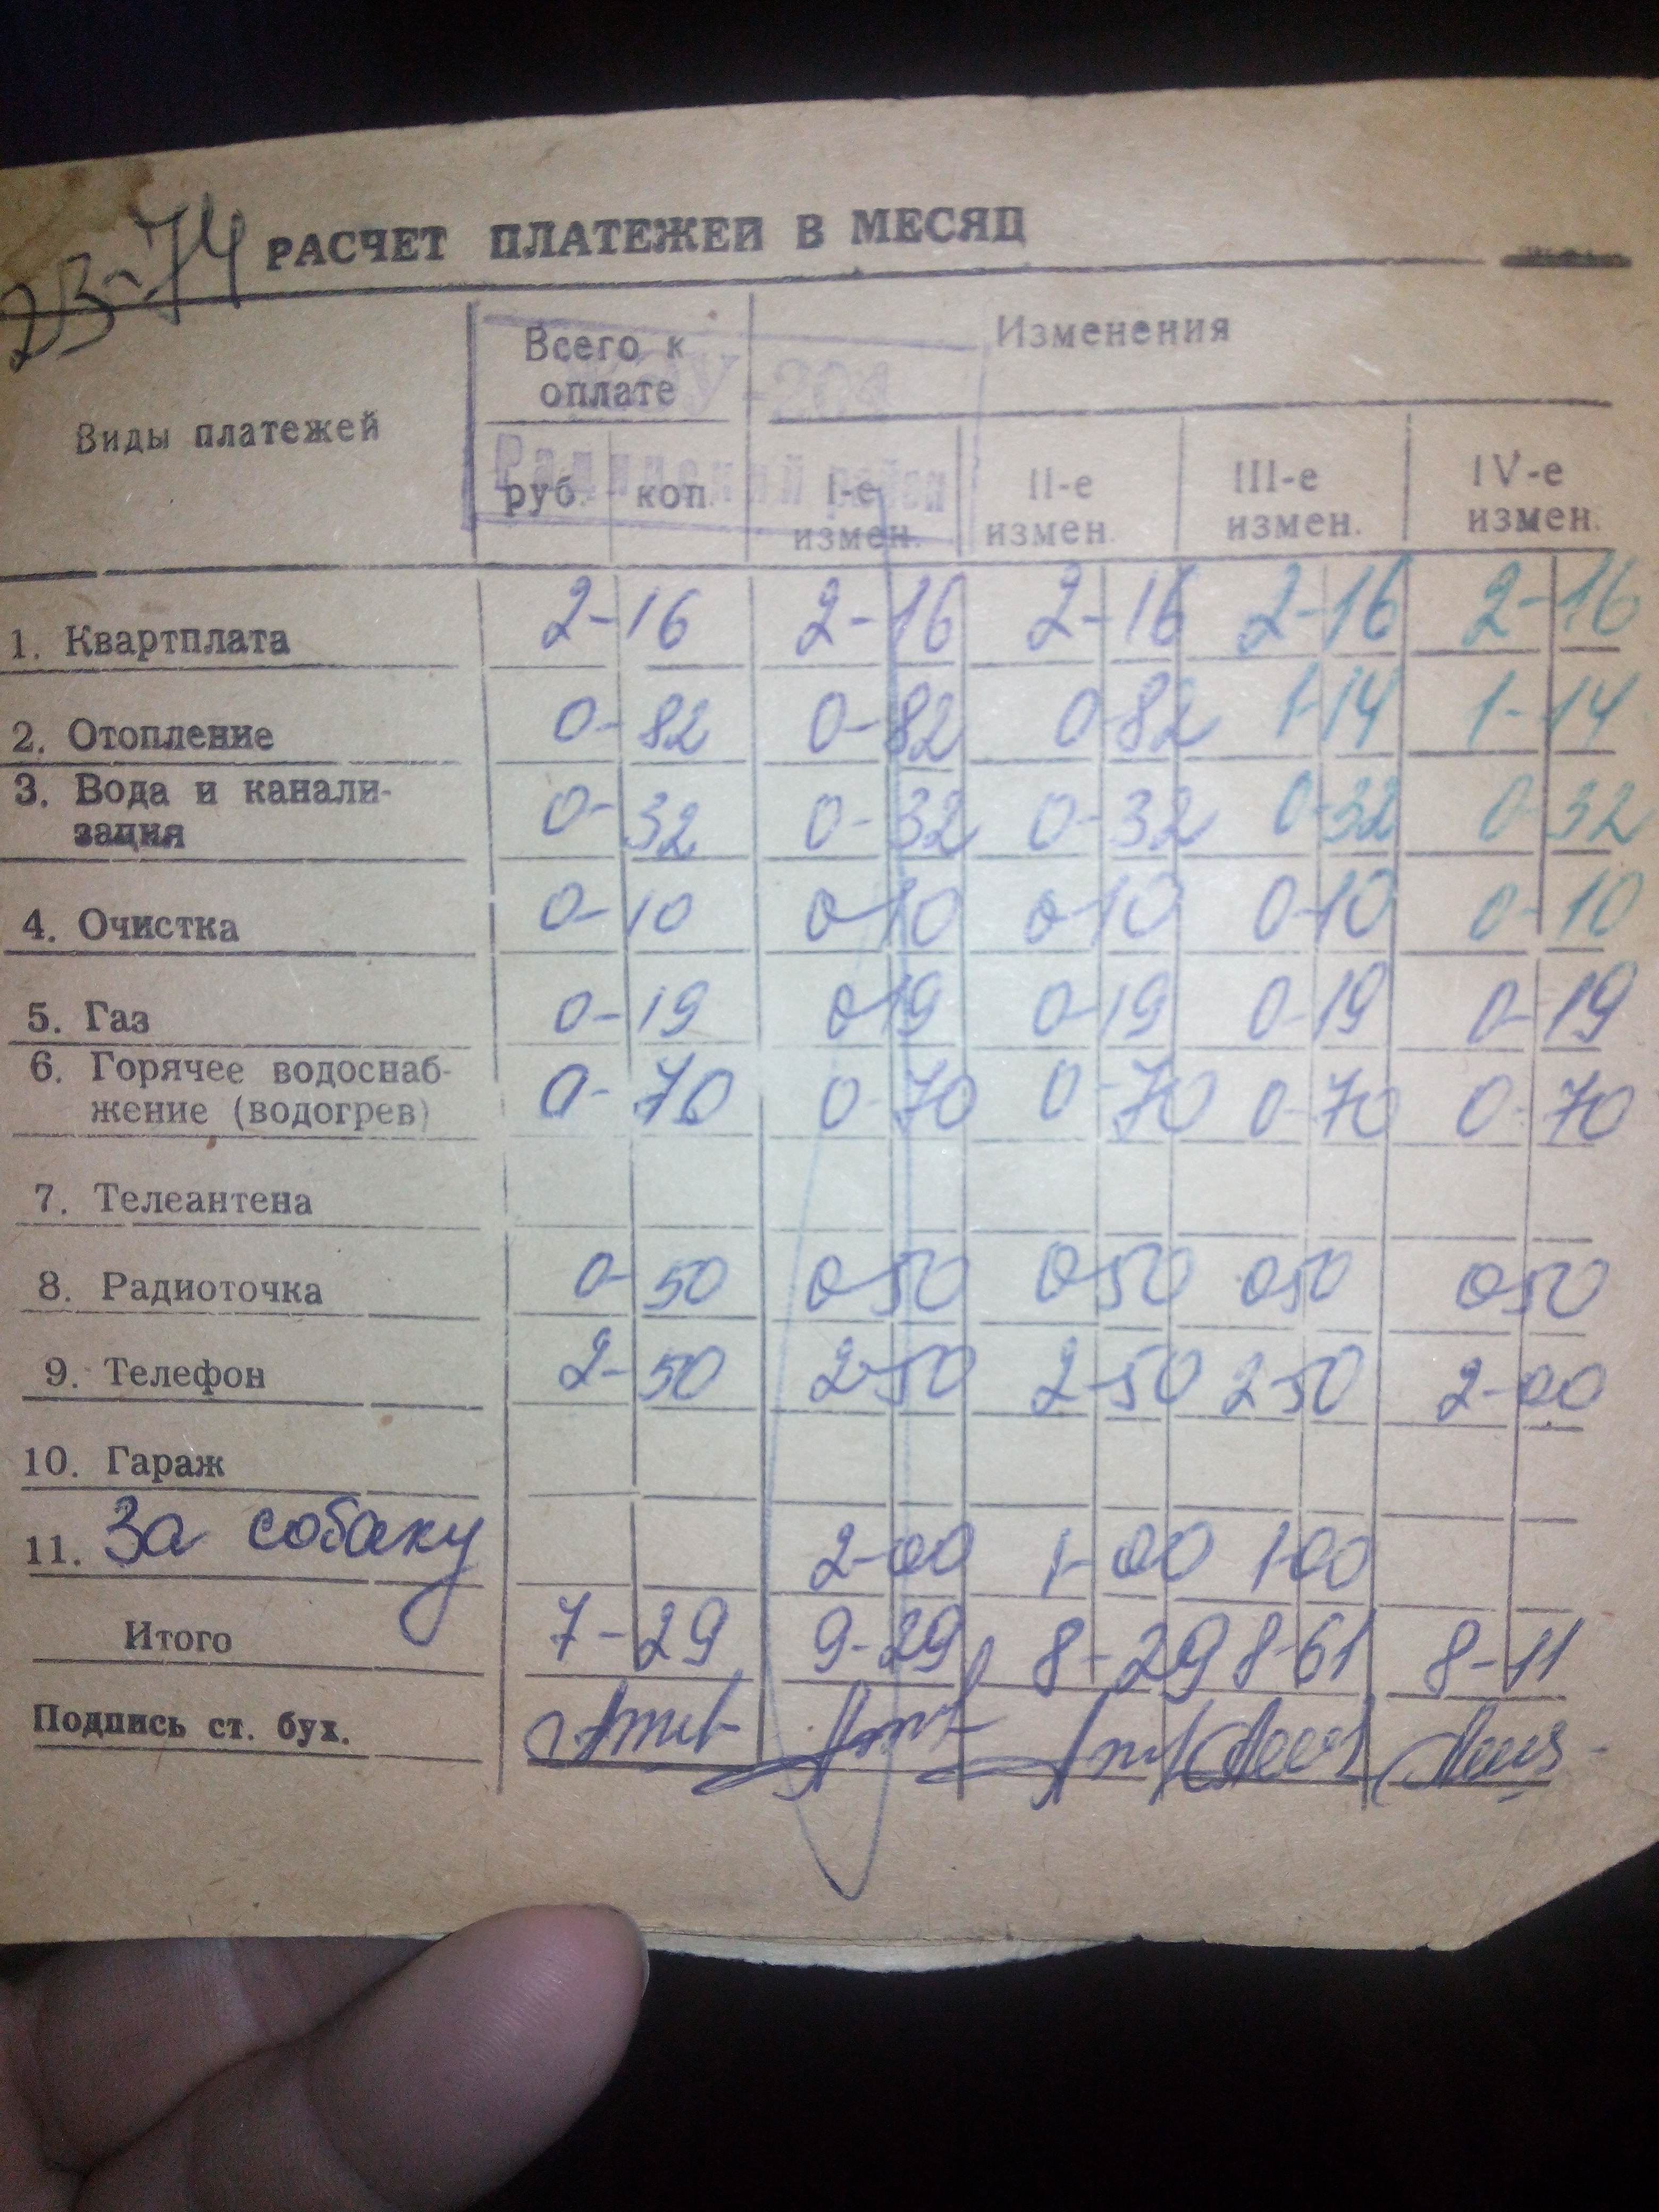 23-74 РАСЧЕТ ПЛАТЕЖЕЙ В МЕСЯЦ
Виды платежей
Всего к
оплате
Изменения
руб. коп.
I-е
измен.
II-е
измен.
III-е
измен.
IV-е
измен.
ЖЭУ-204
район
1. Квартплата 2-16 2-16 2-16 2-16 2-16
2. Отопление 0-82 0-82 0-82 1-14 1-14
3. Вода и канали-
зация 0-32 0-32 0-32 0-32 0-32
4. Очистка 0-10 0-10 0-10 0-10 0-10
5. Газ 0-19 0-19 0-19 0-19 0-19
6. Горячее водоснаб-
жение (водогрев) 0-70 0-70 0-70 0-70 0-70
7. Телеантена
8. Радиоточка 0-50 0-50 0-50 0 50 0 50
9. Телефон 2-50 2-50 2-50 2-50 2-00
10. Гараж
11. За собаку 2-00 1-00 1-00
Итого 7-29 9-29 8-29 8-61 8-11
Подпись ст. бух.